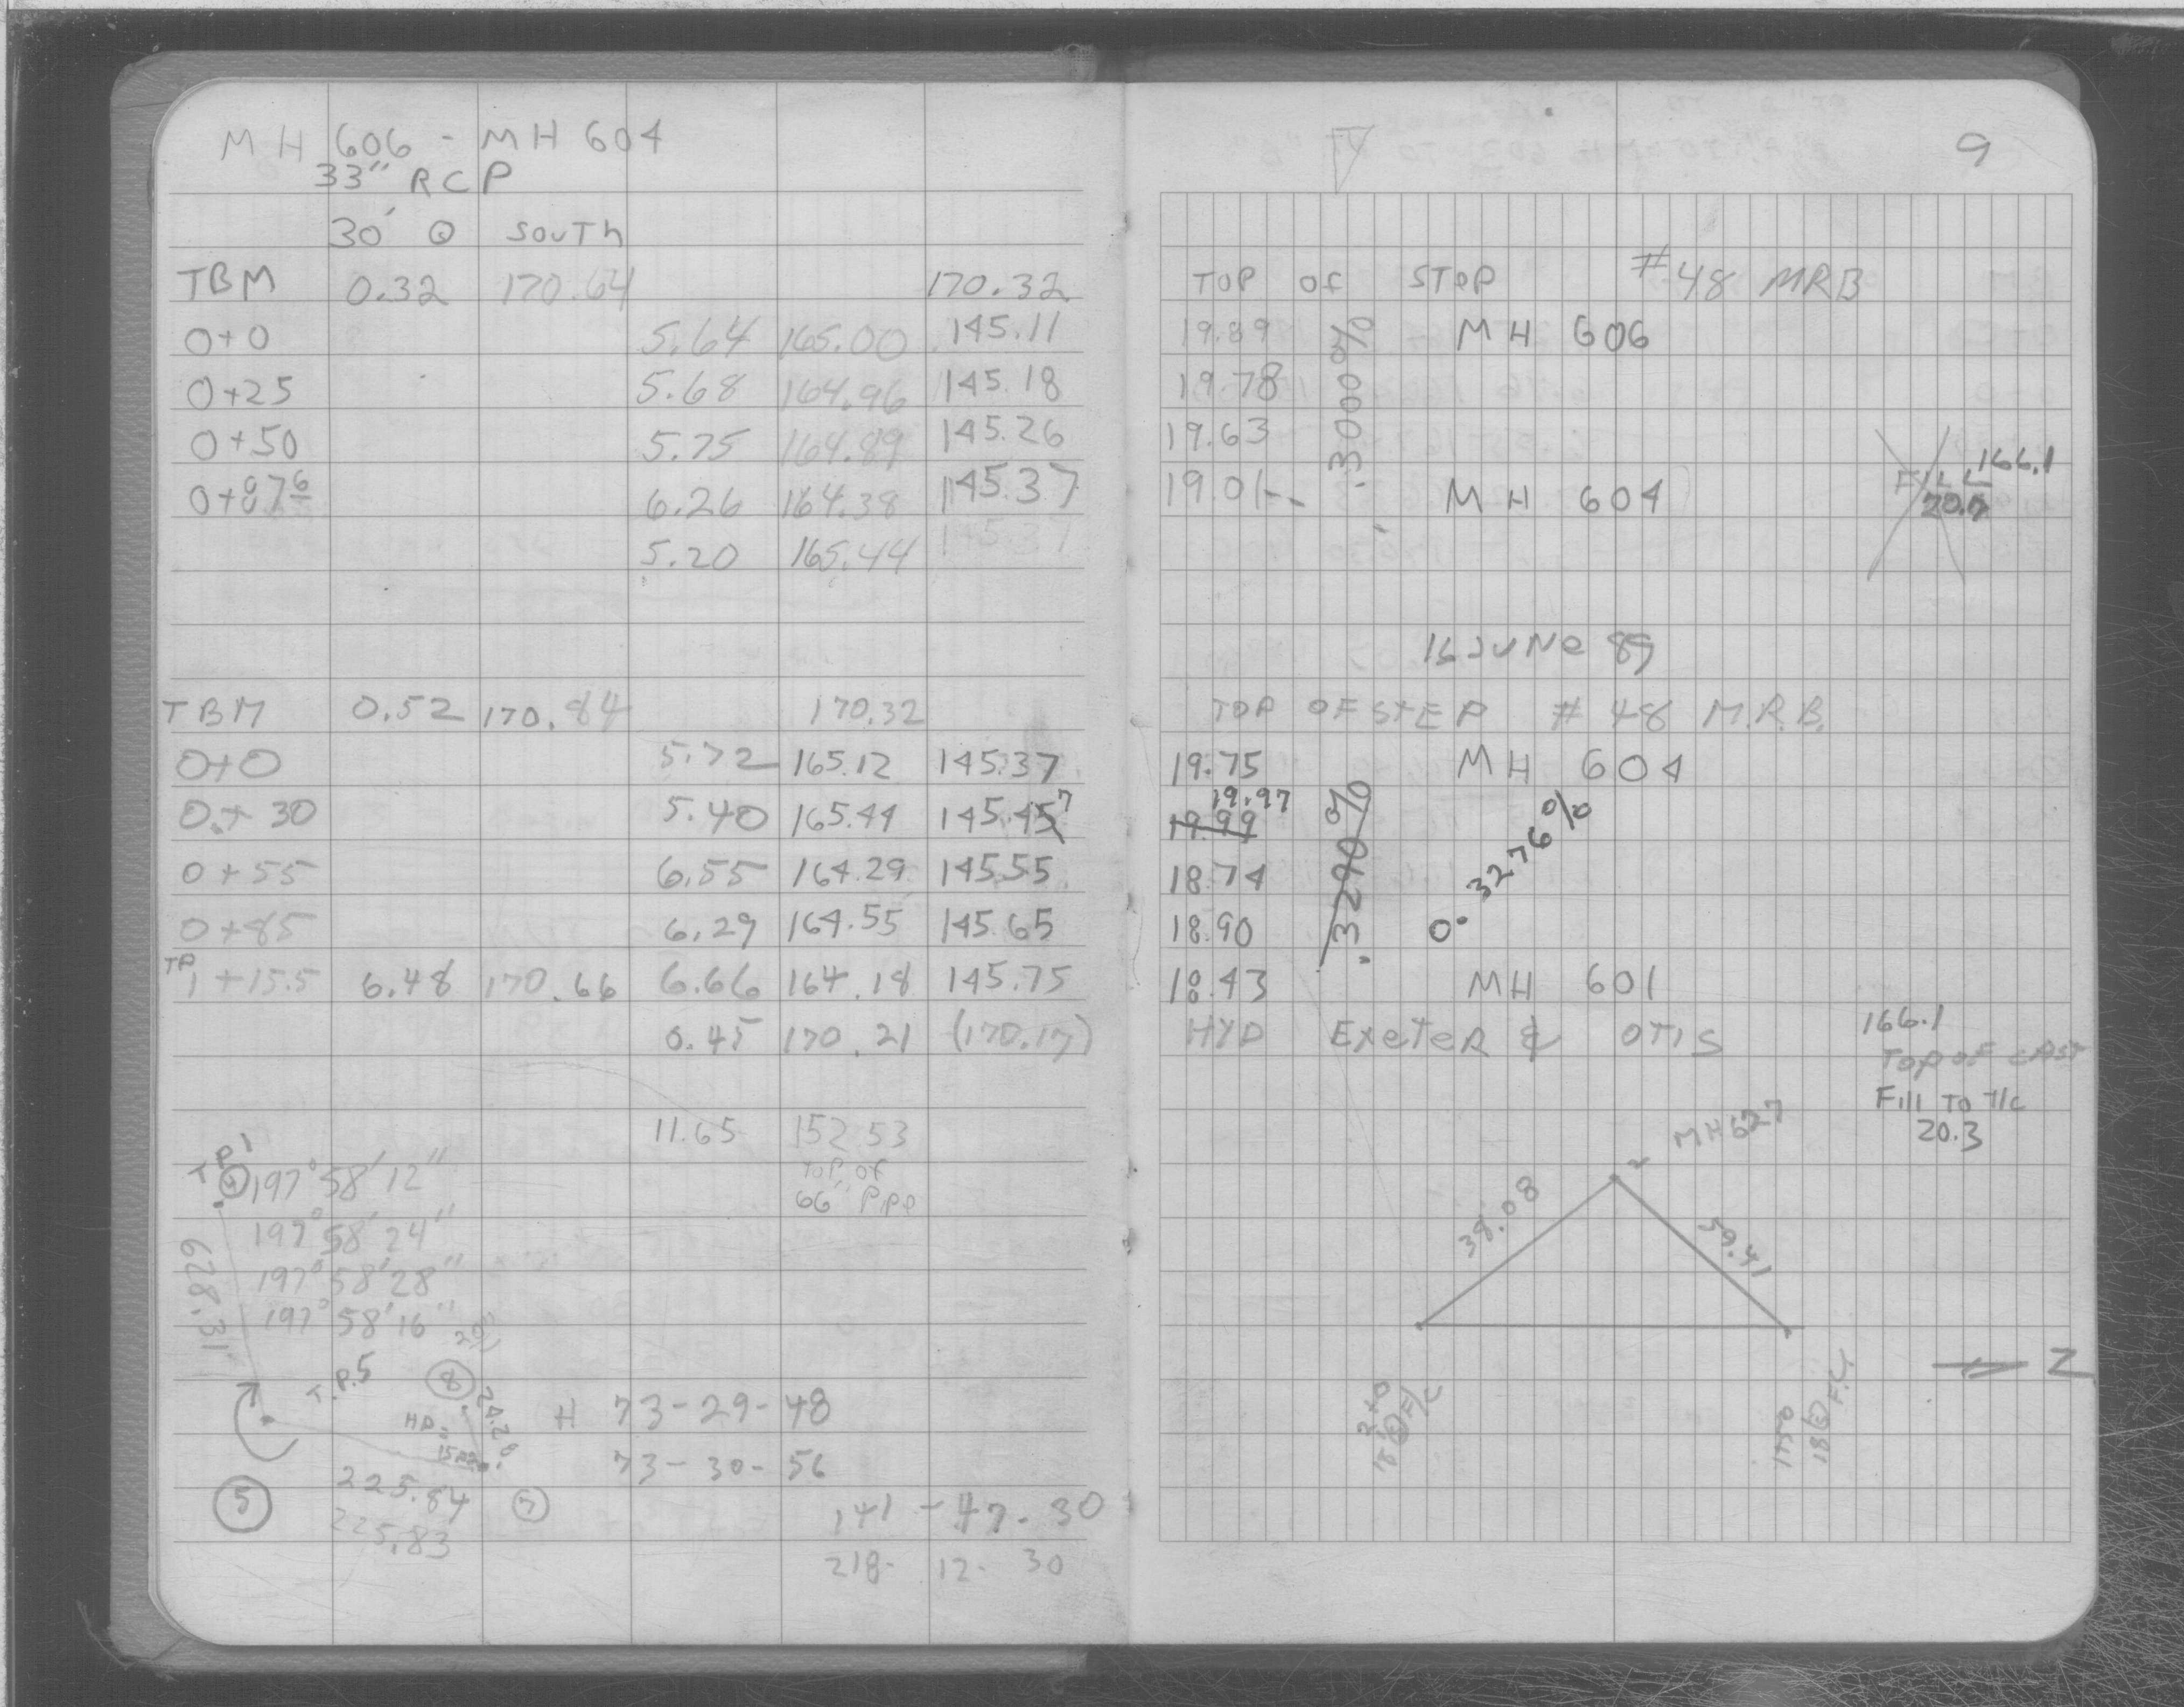 MH 606 - MH 604
33" RCP
30' @ SOUTh
TBM 0.32 170.64 170.32
0+0 5.64 165.00 145.11
0+25 5.68 164.96 145.18
0+50 5.75 164.89 145.26
0+87 6 6.26 164.38 145.37
5.20 165.44 145.37
TBM 0.52 170.84 170.32
0+0 5.72 165.12 145.37
0+30 5.40 165.44 145.45 7
0+55 6.55 164.29 145.55
0+85 6.29 164.55 145.65
TP 1+15.5 6.48 170.66 6.66 164.18 145.75
0.45 170.21 (170.17)
11.65 152.53
TOP OF
66" PIPE
T.P. 1
197° 58' 12"
197° 58' 24"
197° 58' 28"
197° 58' 16"
628.31
T.P.5
8
24.28
HD=
H 73-29-48
73-30-56
5
225.84
225.83
7
141-47-30
218-12-30
9
TOP OF STOP #48 MRB
19.89 MH 606
19.78
19.63
19.01 MH 604
.3000%
166.1
FILL
16 JUNe 89
TOP OF STEP #48 M.R.B.
19.75 MH 604
19.97
19.99
18.74
18.90
18.43 MH 601
.3290%
0.3276%
HYD EXeTeR & OTIS
166.1
TOP OF CAST
Fill TO T/C
20.3
MH 627
38.08
59.41
2+0
18 @ F/C
1+50
18 @ F.C.
Z